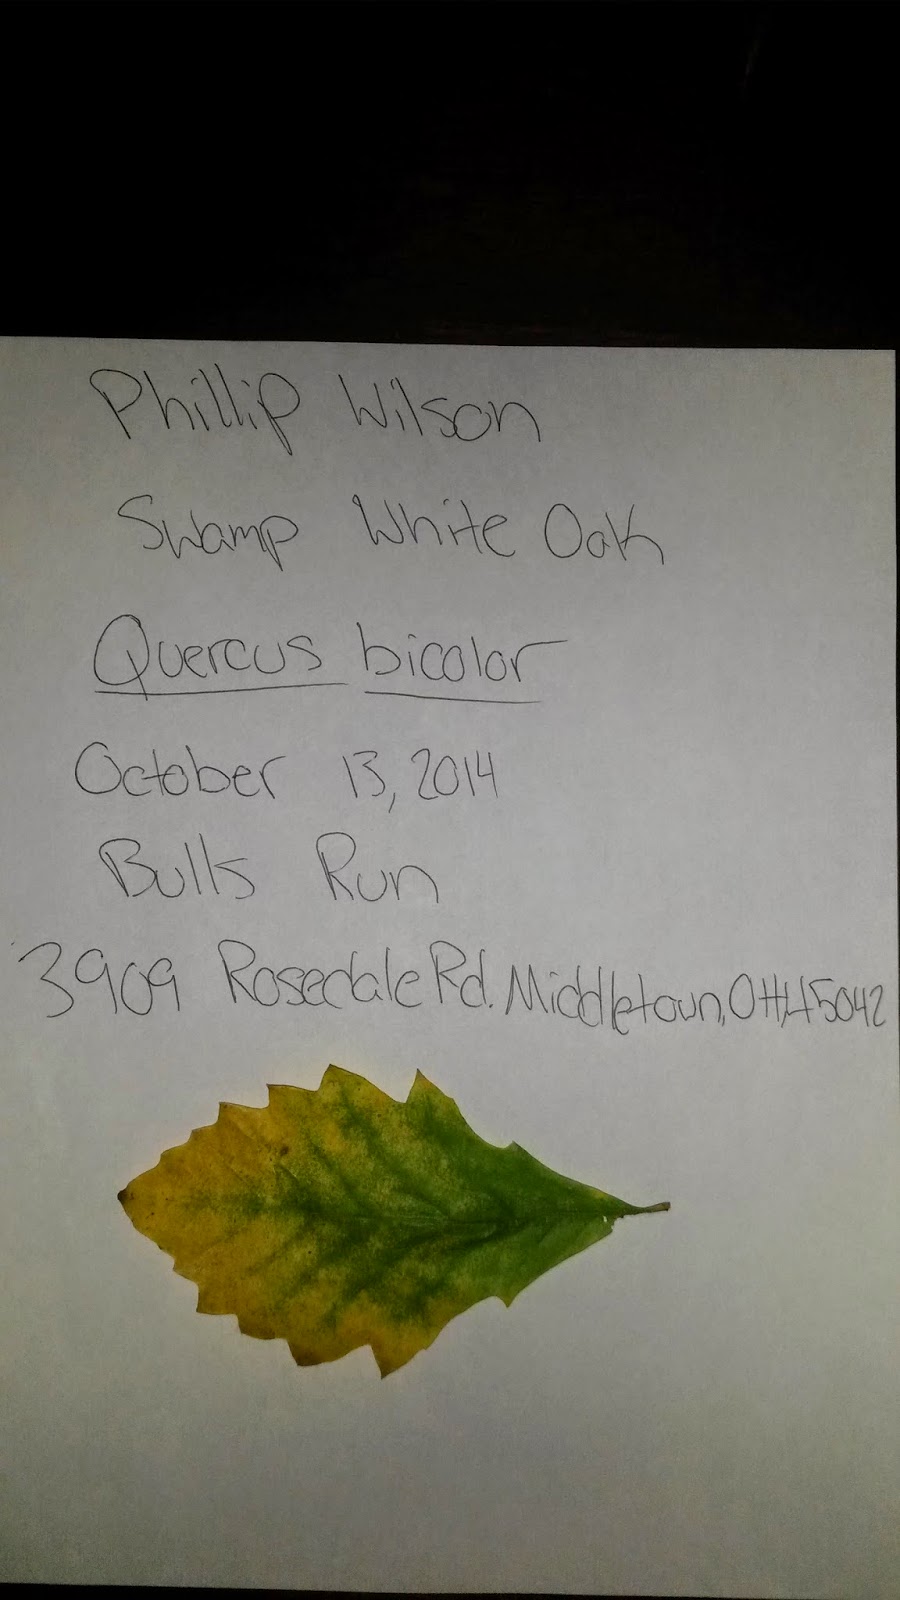 Phillip Wilson
Swamp White Oak
Quercus bicolor
October 13, 2014
Bulls Run
3909 Rosedale Rd. Middletown, OH, 45042